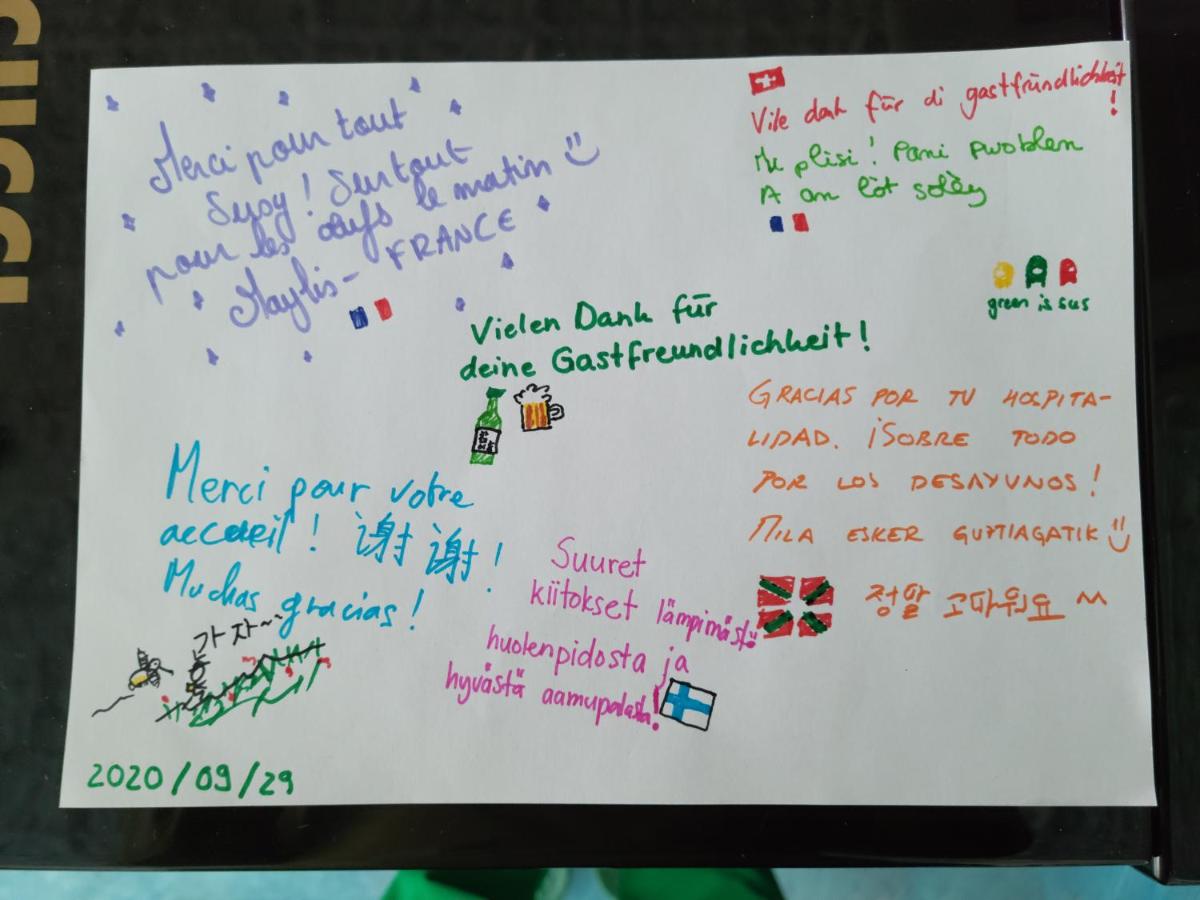 Merci pour tout
Susy! Surtout
pour les oeufs le matin
Maylis - FRANCE
Vile dank für di gastfründlichkeit!
Mè plisi! Pani pwoblem
A an lòt solèy
green is sus
Vielen Dank für
deine Gastfreundlichkeit!
GRACIAS POR TU HOSPITA-
LIDAD. ¡SOBRE TODO
POR LOS DESAYUNOS!
MILA ESKER GUZTIAGATIK
정말 고마워요 ^^
Merci pour votre
accueil! 谢谢!
Muchas gracias!
가자~~
Suuret
kiitokset lämpimästä
huolenpidosta ja
hyvästä aamupalasta!
2020/09/29